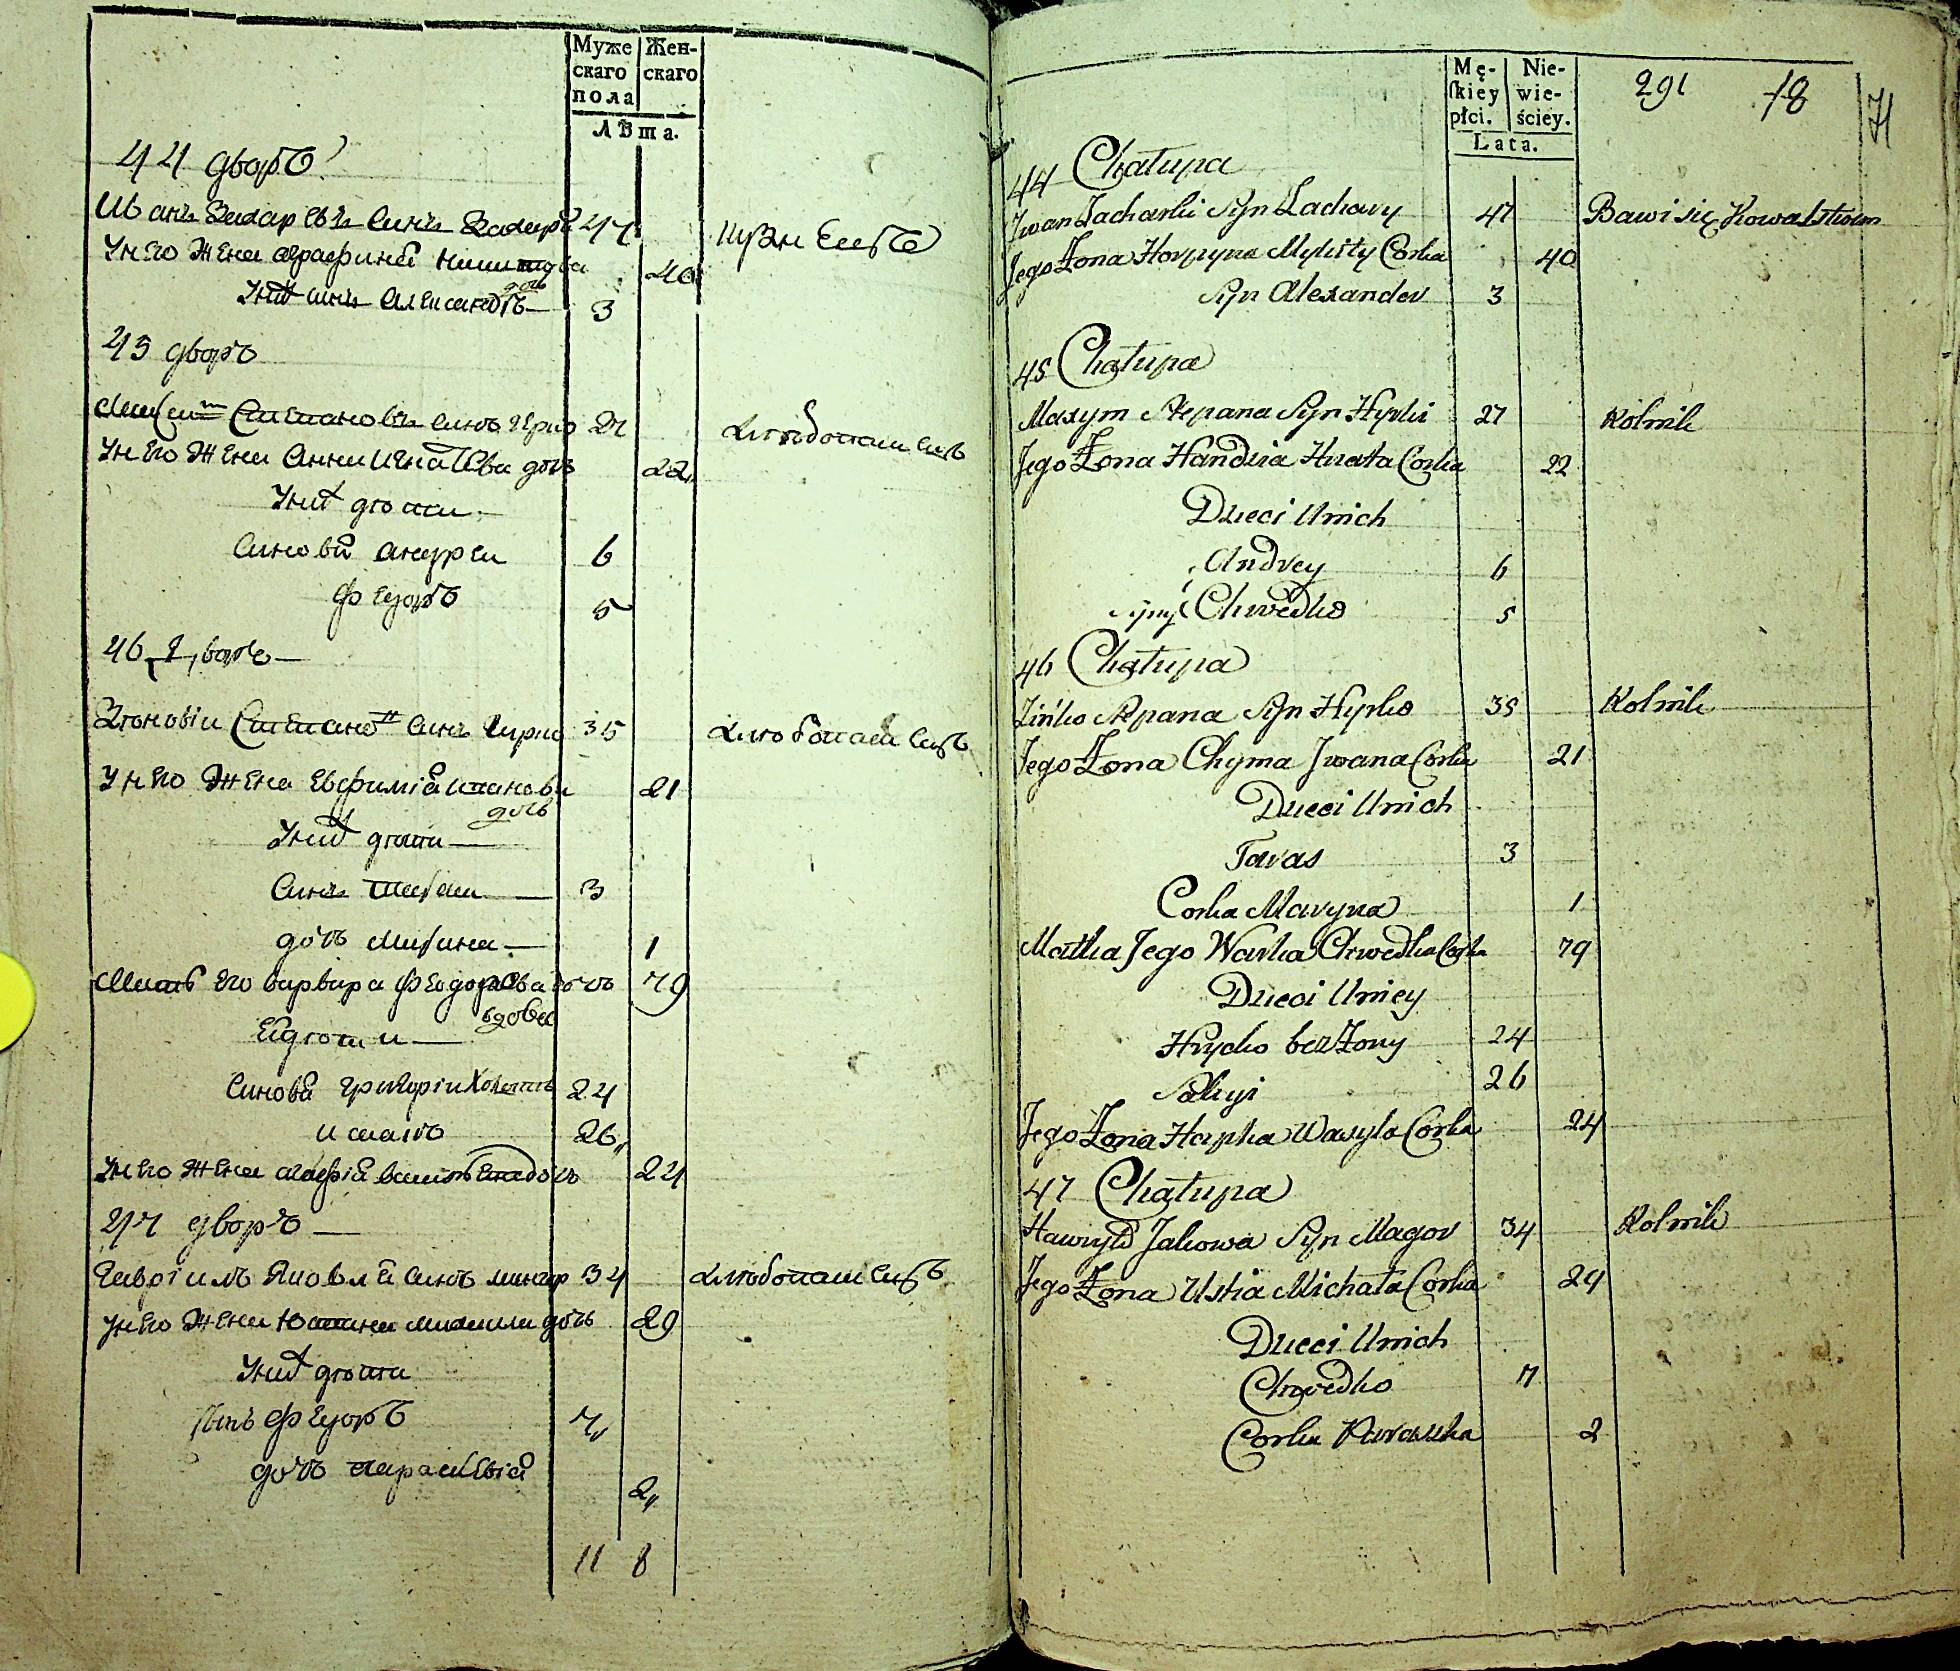 Муже
скаго
пола
Жен-
скаго
Лѣта.
44 дворъ
Иванъ Захаревъ синъ Захаръ 47
У него жена аграфина Никитова дочь 40
У них синъ Александръ 3
45 дворъ
Максимъ Степановъ синъ 27
У него жена Анна Игнатова дочь 22
У них дети
Синовя андреи 6
Федоръ 5
46 дворъ
Зѣновіи Степановъ синъ 35
У него жена Евфимія Иванова дочь 21
У них дети
Синъ тарасъ 3
дочь марина 1
Мать его варвара Федорова дочь вдова 79
Ей дети
Синовя григоріи Холостъ 24
26
У него жена агафія василева дочь 24
47 дворъ
Гавріилъ Яковля синъ 34 хлебопашецъ
У него жена Юстина михаила дочь 29
У них дети
Синъ Федоръ 7
дочь параскевія 2
11 8
Mę-
skiey
płci.
Nie-
wie-
ściey.
Lata.
291 78
71
44 Chałupa
Iwan Zacharki Syn Zachary 47 Bawi się Kowalstwem
Jego Żona Horpyna Mykity Corka 40
Syn Alexander 3
45 Chałupa
Maxym Stepana Syn Hyrki 27 Rolnik
Jego Żona Handzia Hnata Corka 22
Dzieci Unich
Andrey 6
Syny Chwedko 5
46 Chałupa
Zińko Stepana Syn Hyrko 35 Rolnik
Jego Żona Chyma Jwana Corka 21
Dzieci Unich
Taras 3
Corka Maryna 1
Matka Jego Warka Chwedka Corka 79
Dzieci Uniey
Hrycko bez Żony 24
26
Jego Żona Hapka Wasyla Corka 24
47 Chałupa
Hawryło Jakowa Syn Magor 34 Rolnik
Jego Żona Ustia Michała Corka 29
Dzieci Unich
Chwedko 7
Corka Paraszka 2